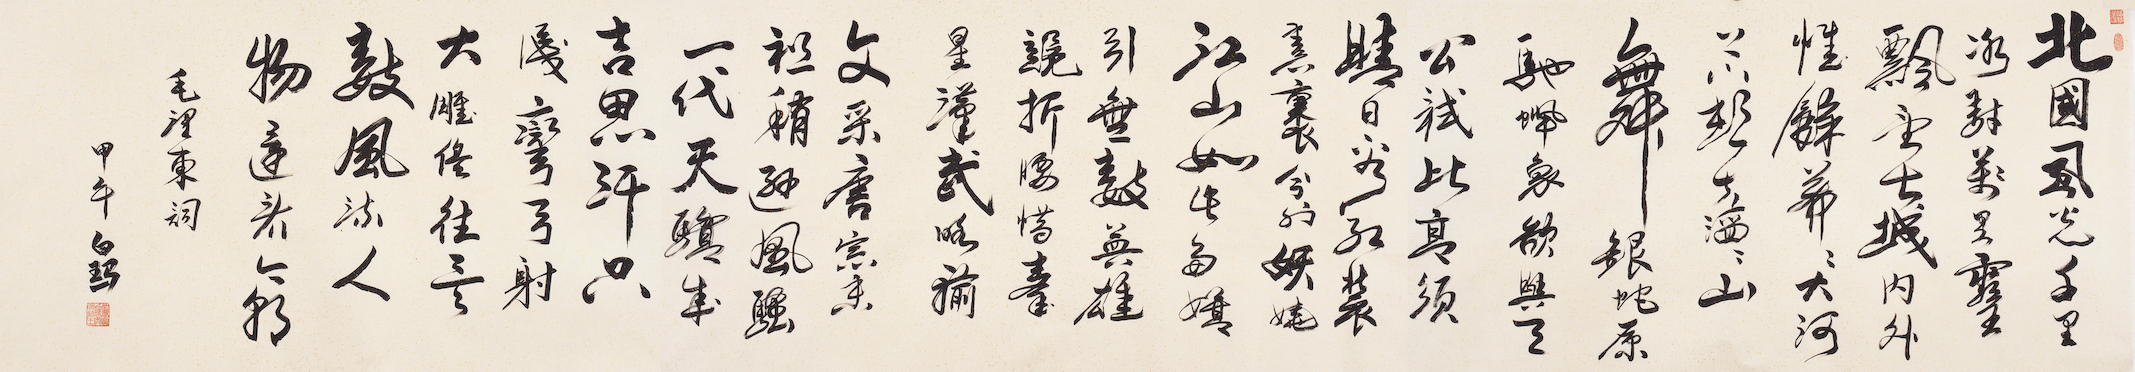 北國風光千里
冰封萬里雪
飄望長城內外
惟餘莽々大河
上下頓失滔々山
舞銀蛇原
馳蠟象欲與天
公試比高須
晴日看紅裝
素裹分外妖嬈
江山如此多嬌
引無數英雄
競折腰惜秦
皇漢武略輸
文采唐宗宋
祖稍遜風騷
一代天驕成
吉思汗只
識彎弓射
大雕俱往矣
數風流人
物還看今朝
毛澤東詞
甲午